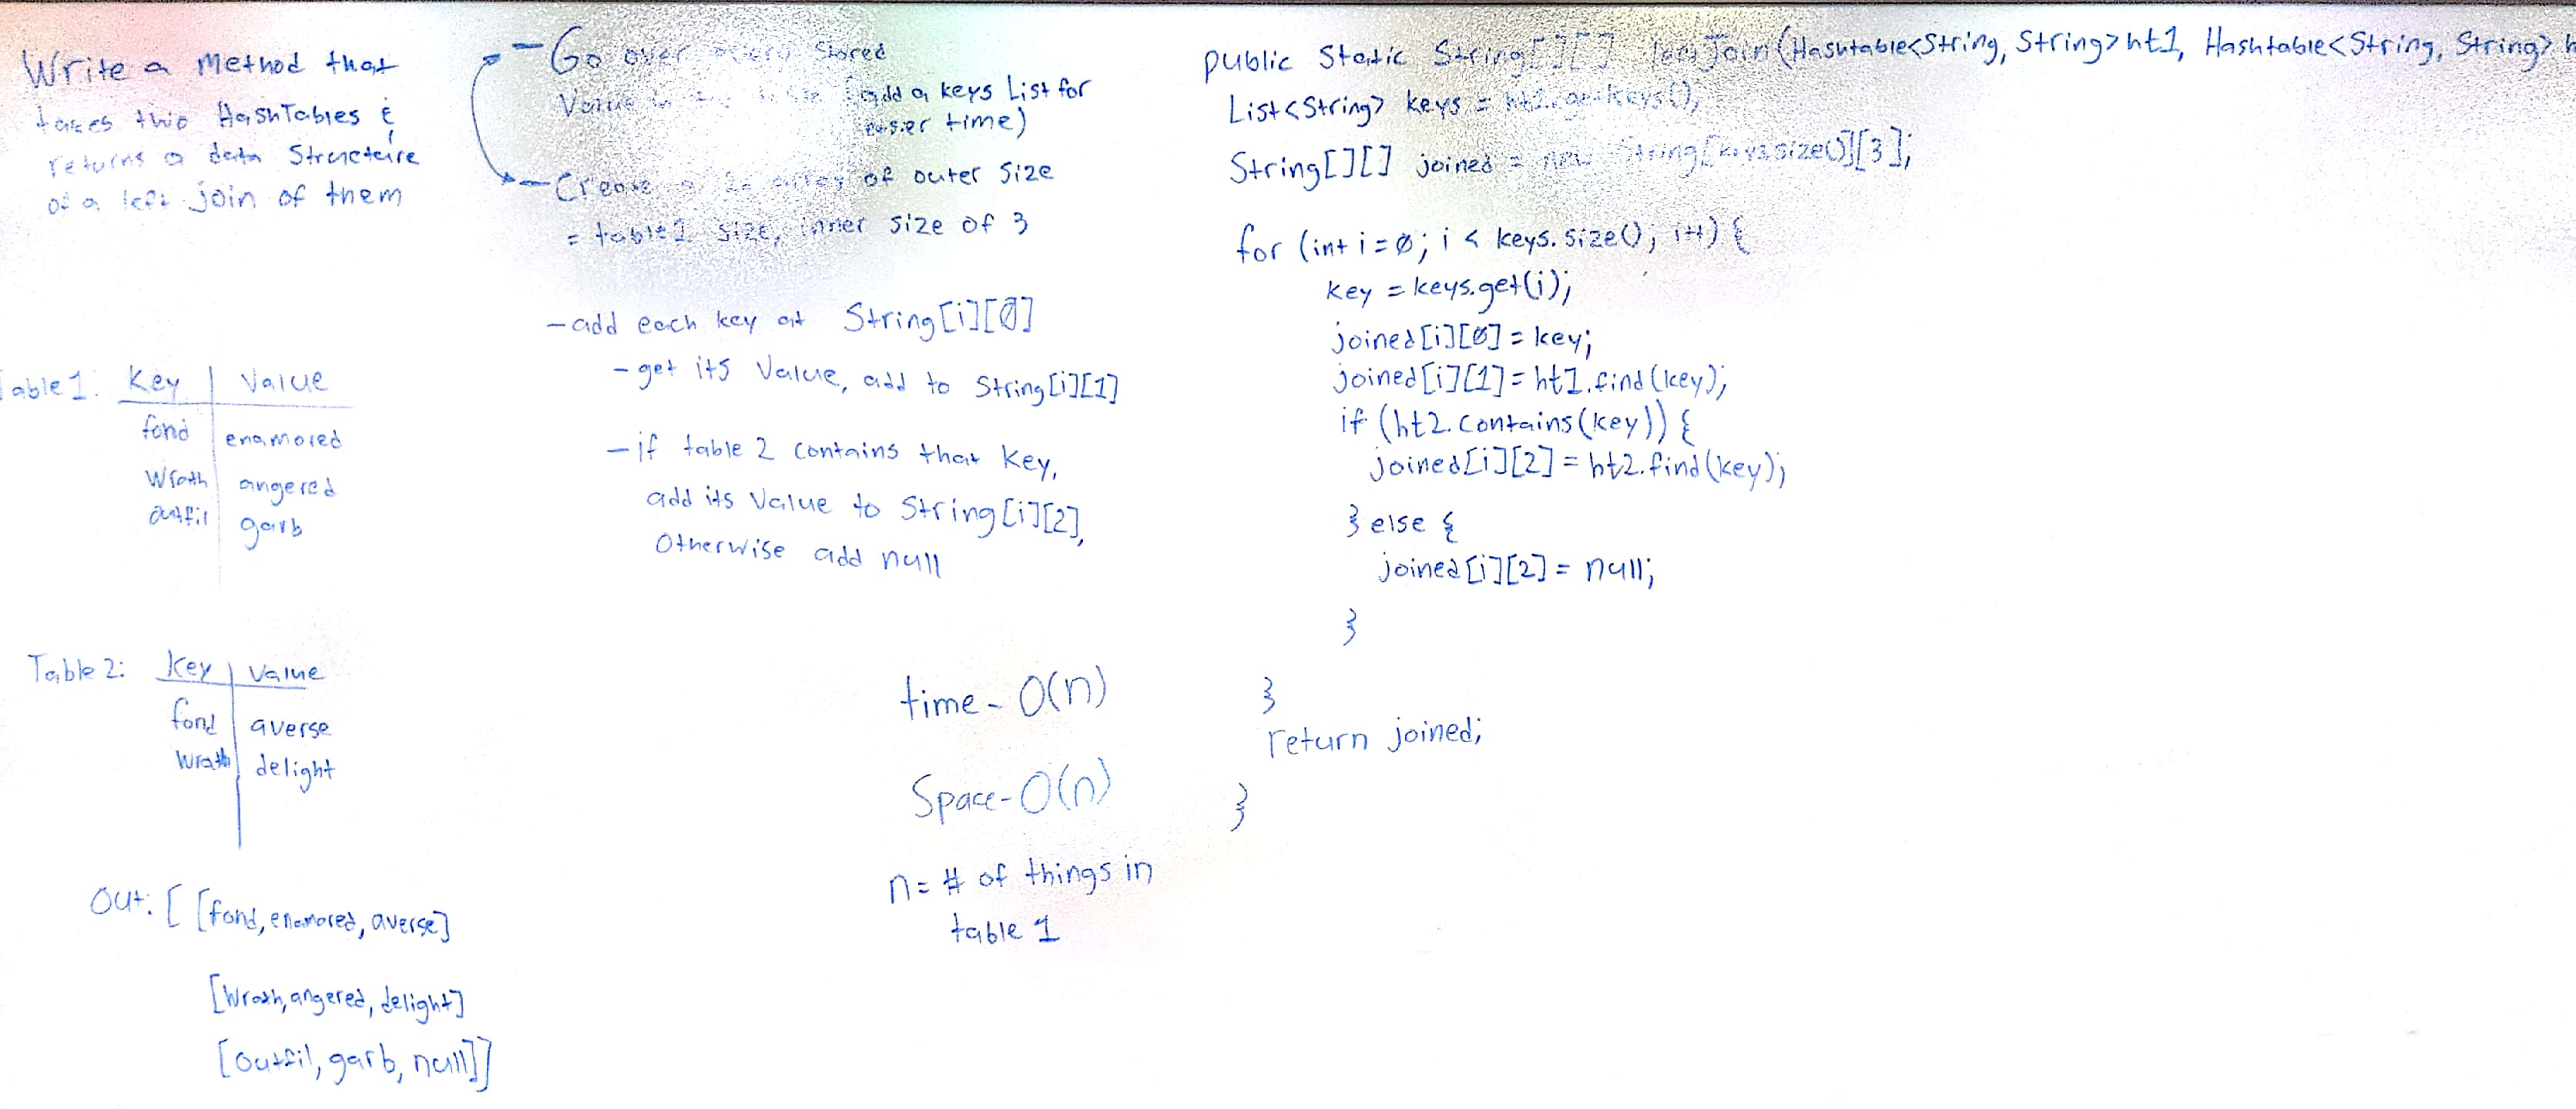 Write a method that
takes two HashTables &
returns a data Structure
of a left join of them
able 1: Key | Value
fond | enamored
Wrath | angered
outfil | garb
Table 2: Key | Value
fond | averse
wrath | delight
Out: [ [fond, enamored, averse]
[Wrath, angered, delight]
[outfil, garb, null]]
- Go over every Stored
Value in (add a keys List for
easier time)
- Create a 2d array of outer Size
= table 1 size, inner size of 3
- add each key at String[i][0]
- get its Value, add to String[i][1]
- if table 2 contains that key,
add its Value to String[i][2],
Otherwise add null
time - O(n)
Space - O(n)
n = # of things in
table 1
public Static String[][] Join(Hashtable<String, String> ht1, Hashtable<String, String> h
List<String> keys =
String[][] joined = new String[keys.size()][3];
for (int i = 0; i < keys.size(); i++) {
key = keys.get(i);
joined[i][0] = key;
joined[i][1] = ht1.find(key);
if (ht2.contains(key)) {
joined[i][2] = ht2.find(key);
} else {
joined[i][2] = null;
}
}
return joined;
}